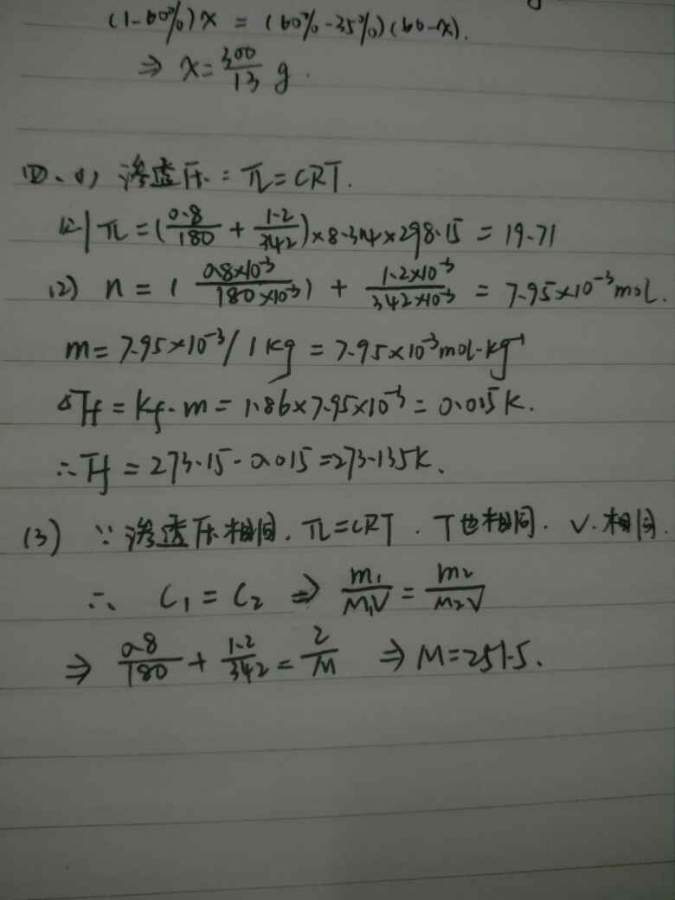 (1-60%)x = (60%-35%)(60-x).
⇒ x=300/13 g.
四、(1) 渗透压: π=CRT.
则 π=(0.8/180 + 1.2/342)×8.314×298.15 = 19.71
(2) n = ( 0.8×10⁻³/180×10⁻³) + 1.2×10⁻³/342×10⁻³ = 7.95×10⁻³mol.
m= 7.95×10⁻³/1kg = 7.95×10⁻³mol·kg⁻¹
ΔTf = kf·m = 1.86×7.95×10⁻³ = 0.015K.
∴Tf = 273.15-0.015=273.135K.
(3) ∵渗透压相同. π=CRT. T也相同. V.相同.
∴ C₁ = C₂ ⇒ m₁/M₁V = m₂/M₂V
⇒ 0.8/180 + 1.2/342 = 2/M ⇒ M=251.5.